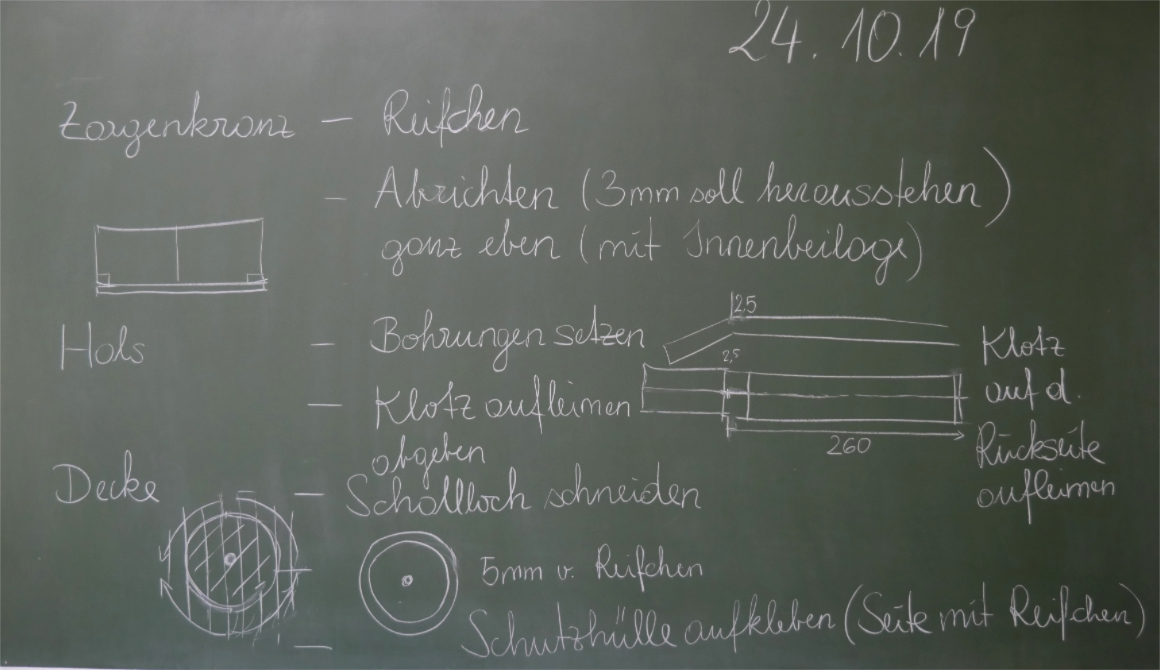 24.10.19
Zargenkranz – Reifchen
– Abrichten (3mm soll herausstehen)
ganz eben (mit Innenbeilage)
Hals – Bohrungen setzen
2,5
2,5
– Klotz aufleimen
abgeben
260
Klotz
auf d.
Rückseite
aufleimen
Decke – Schallloch schneiden
– 5mm v. Reifchen
– Schutzhülle aufkleben (Seite mit Reifchen)